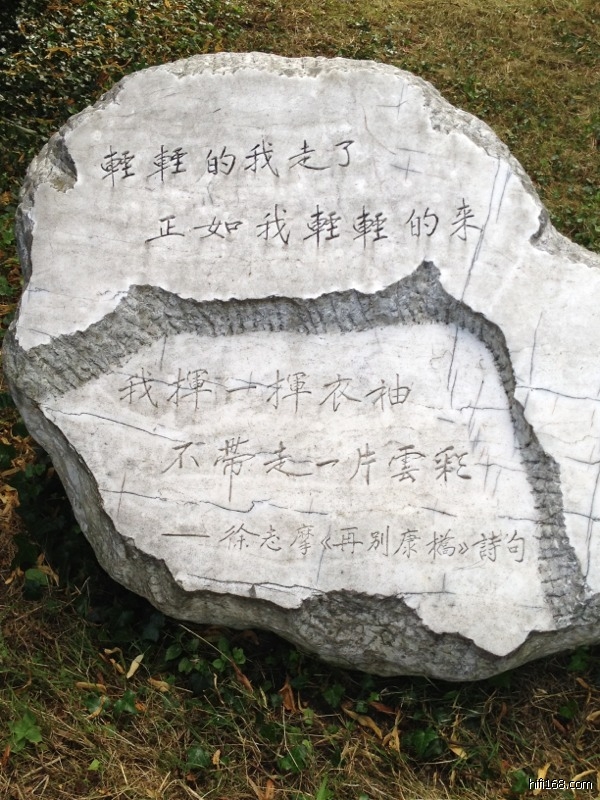 輕輕的我走了
正如我輕輕的来
我揮一揮衣袖
不带走一片雲彩
——徐志摩《再别康橋》詩句
hifi168.com